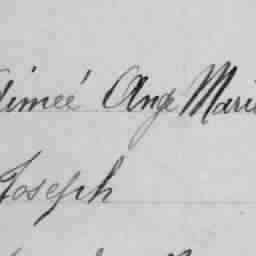 Aimeé Ange Marie
Joseph